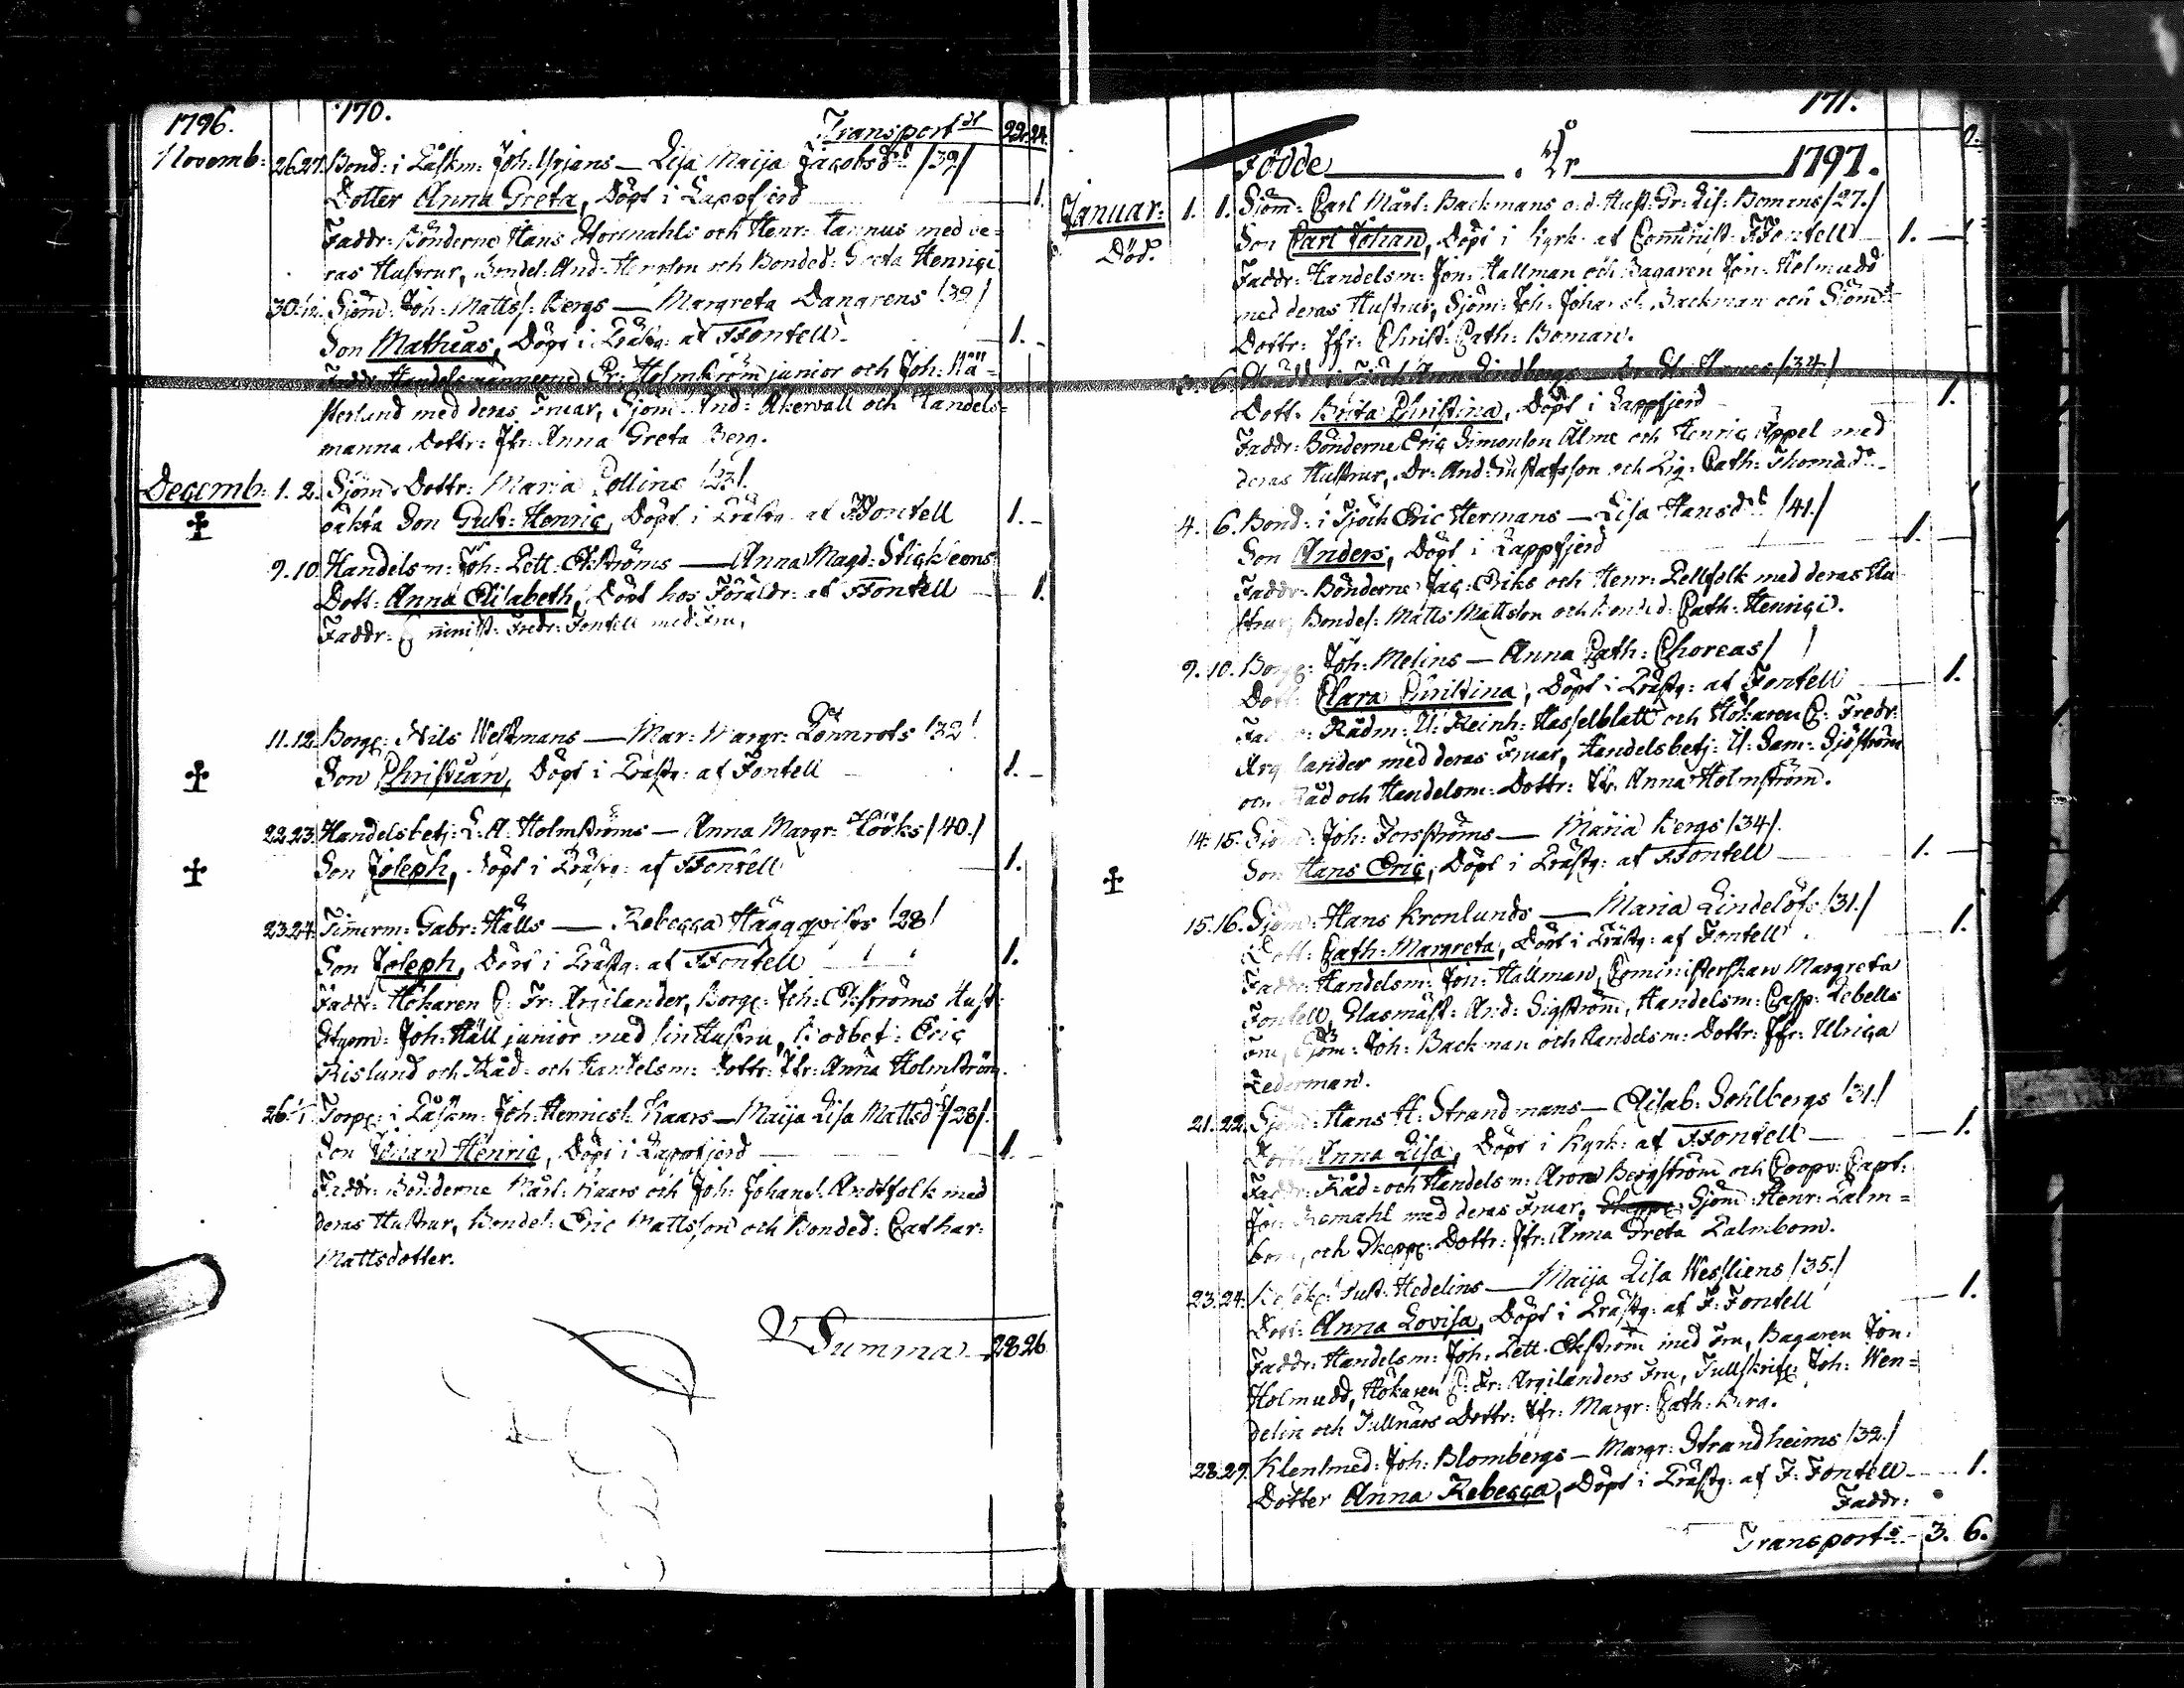 1796. 170. Transport 22. 24.
Novemb: 26. 27. Bond: i Låskm: Joh: Yrjans — Lisa Maija Jacobsd: /39/
Dotter Anna Greta, Döpt i Lappfjerd 1.
Faddr: Bönderne Hans Stormahls och Henr: Tannus med de-
ras Hustrur, Bondes: And: Henrson och Bonded: Greta Henrici
30. Sjöm: Joh: Mattss: Bergs — Margreta Danarens /39/
Son Mathias, Döpt i Prästg: af FFontell 1.
Faddr: Handelsmännerne Er: Holmström junior och Joh: Nä-
sterlund med deras Fruar, Sjöm: And: Åkervall och Handels-
manna Dottr: Jfr: Anna Greta Berg.
Decemb: 1. 2. Sjöm: Dottr: Maria Pollins /23/.
oäkta Son Gust: Henric, Döpt i Prästg: af FFontell 1.
9. 10. Handelsm: Joh: Zett: Ekströms — Anna Magd: Stickleons
Dott: Anna Elisabeth, Döpt hos Föräldr: af FFontell 1.
Faddr: Fredr: Fontell med Fru,
11. 12. Borg: Nils Westmans — Mar: Margr: Lönnrots /32/
Son Christian, Döpt i Prästg: af Fontell 1.
22. 23. Handelsbetj: L: A: Holmströms — Anna Margr: Hööks /40./
Son Joseph, Döpt i Prästg: af FFontell 1.
23. 24. Timmerm: Gabr: Hälls — Rebecca Häggqvists /28/
Son Joseph, Döpt i Prästg: af FFontell 1.
Faddr: Hökaren C: Fr: Argilander, Borg: Joh: Ekströms Hust:
Styrm: Joh: Häll junior med sin Hustru, Bodbet: Eric
Rislund och Råd- och Handelsm: Dottr: Jfr: Anna Holmström.
26. Torp: i Låskm: Joh: Henrics: Kaars — Maija Lisa Mattsd: /28/.
Son Johan Henric, Döpt i Lappfjerd 1.
Faddr: Bönderne Mårt: Kaars och Joh: Johans: Andtfolk med
deras Hustrur, Bondes: Eric Mattsson och Bonded: Cathar:
Mattsdotter.
Summa 28 26
171.
Födde År 1797.
Januar: 1. 1. Sjöm: Carl Mårt: Backmans o: d: Hust: Br: Lis: Bomans /27./
Död. Son Carl Johan, Döpt i Kyrk: af Comminist: FFontell 1.
Faddr: Handelsm: Jon: Hallman och Bagaren Jon: Holmudd
med deras Hustrur, Sjöm: Joh: Johans: Backman och Sjöm:
Dottr: Jfr: Christ: Cath: Boman.
6. Lindbergs /34./
Dott: Brita Christina, Döpt i Lappfjerd 1.
Faddr: Bönderne Eric Simonson Alme och Henric Äppel med
deras Hustrur, Dr: And: Gustafsson och Pig: Cath: Thomæd:
4. 6. Bond: i Tjöck Eric Hermans — Lisa Hansd: /41./
Son Anders, Döpt i Lappfjerd 1.
Faddr: Bönderne Jac: Eriks och Henr: Pellfolk med deras Hu-
strur, Bondes: Matts Mattsson och Bonded: Cath: Henrici.
9. 10. Borg: Joh: Melins — Anna Cath: Choreas / /
Dott: Clara Christina, Döpt i Prästg: af Fontell 1.
Rådm: U: Reinh: Hasselblatt och Hökaren C: Fredr:
Argilander med deras Fruar, Handelsbetj: U: Sam: Sjöström
och Råd och Handelsm: Dottr: Jfr: Anna Holmström.
14. 15. Sjöm: Joh: Forsströms — Maria Bergs /34/.
Son Hans Eric, Döpt i Prästg: af FFontell 1.
15. 16. Sjöm: Hans Kronlunds — Maria Lindelöfs /31./
Dott: Cath: Margreta, Döpt i Prästg: af Fontell 1.
Faddr: Handelsm: Jon: Hallman, Comministerskan Margreta
Fontell, Glasmäst: And: Sigström, Handelsm: Casp: Lebells
Fru, Sjöm: Joh: Backman och Handelsm: Dottr: Jfr: Ulrica
Lederman.
21. 22. Sjöm: Hans H: Strandmans — Elisab: Sohlbergs /31./
Dott: Anna Lisa, Döpt i Kyrk: af FFontell 1.
Faddr: Råd- och Handelsm: Aron Bergström och Coopv: Capt:
Jon: med deras Fruar, Sjöm: Henr: Palm-
bom, och Skepp: Dottr: Jfr: Anna Greta Palmbom.
23. 24. Gust: Hedelins — Maija Lisa Wessliens /35./
Dott: Anna Lovisa, Döpt i Prästg: af F: Fontell 1.
Faddr: Handelsm: Joh: Zett: Ekström med Fru, Bagaren Jon:
Holmudd, Hökaren C: Fr: Argilanders Fru, Tullskrif: Joh: Wen-
delin och Tullnärs Dottr: Jfr: Margr: Cath: Berg.
28. 29. Klensmed: Joh: Blombergs — Margr: Strandheims /32./
Dotter Anna Rebecca, Döpt i Prästg: af F: Fontell 1.
Faddr:
Transport: 3. 6.